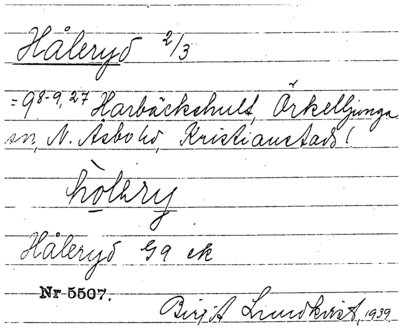 Håleryd 2/3
= 98-9,27 Harbäckshult, Örkelljunga
sn, N. Åsbo hd, Kristianstads l
hòlery
Håleryd Ga ek
Nr 5507.
Birgit Lundkvist, 1939